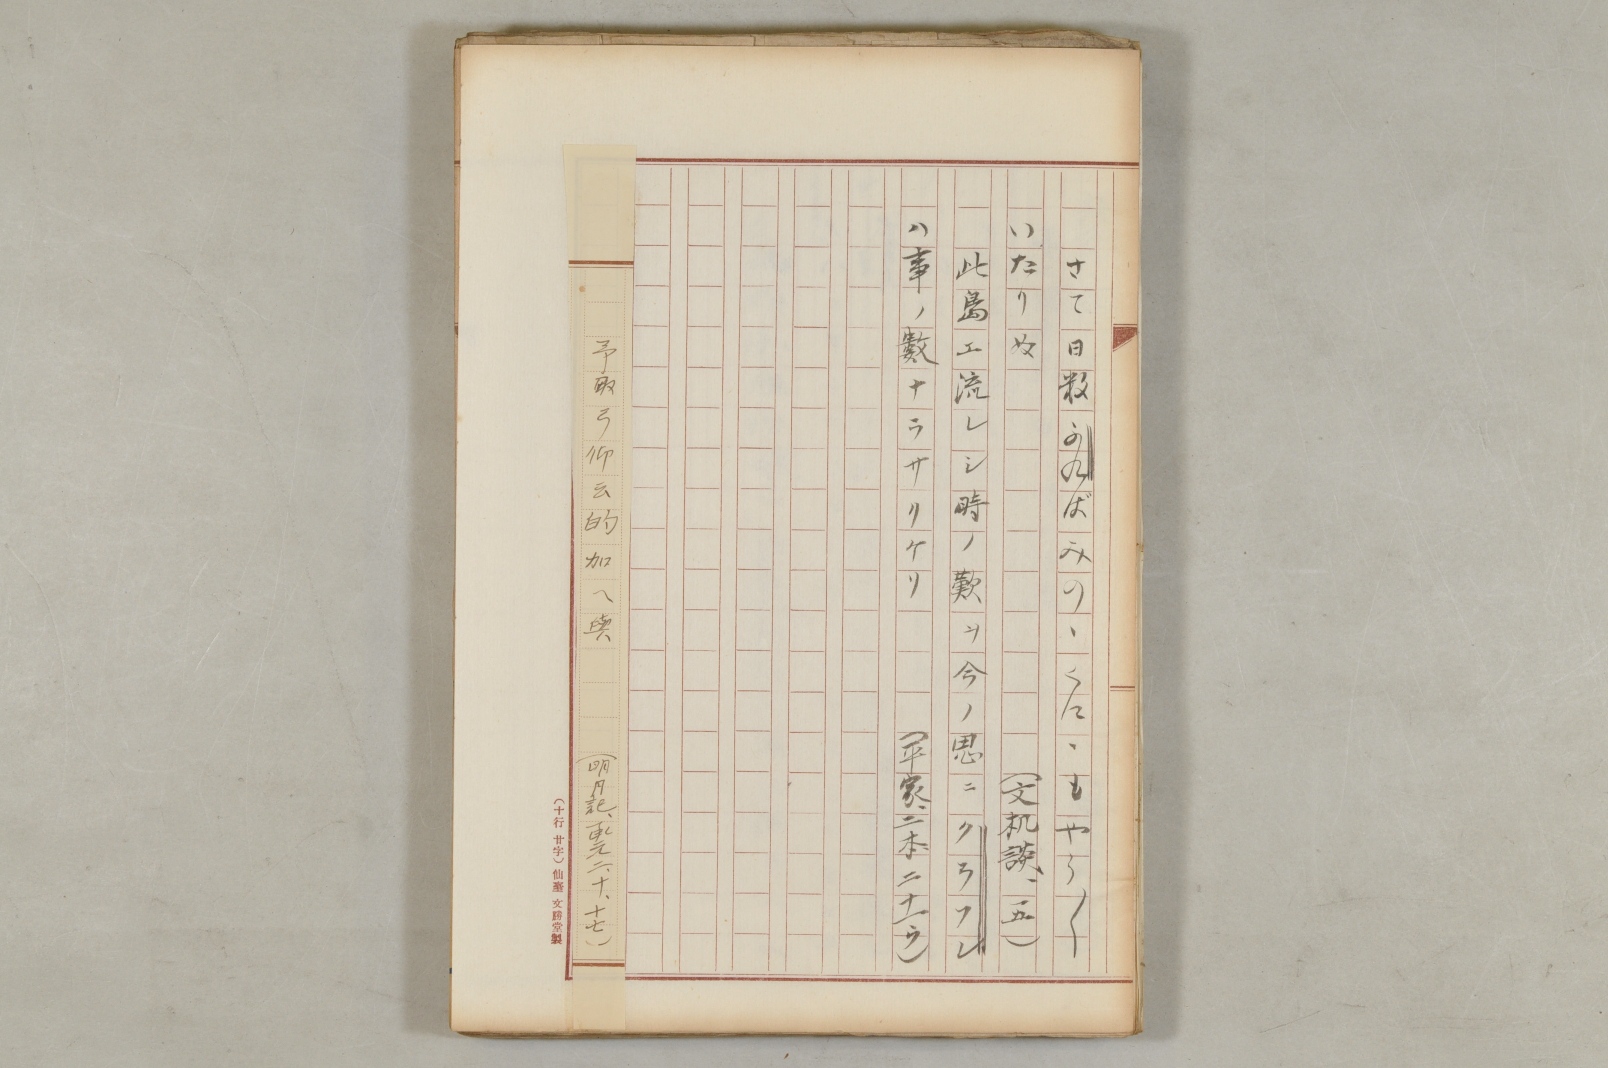 さて日数ふればみのゝくにゝもやう〱
いたりぬ
(文机談、五)
此島エ流レシ時ノ歎ヲ今ノ思ニクラフレ
ハ事ノ數ナラサリケリ
(平家、二本二十一ウ)
予取弓仰云的加へ與
(明月記、承元二、十、十七)
(十行廿字)仙臺 文勝堂製